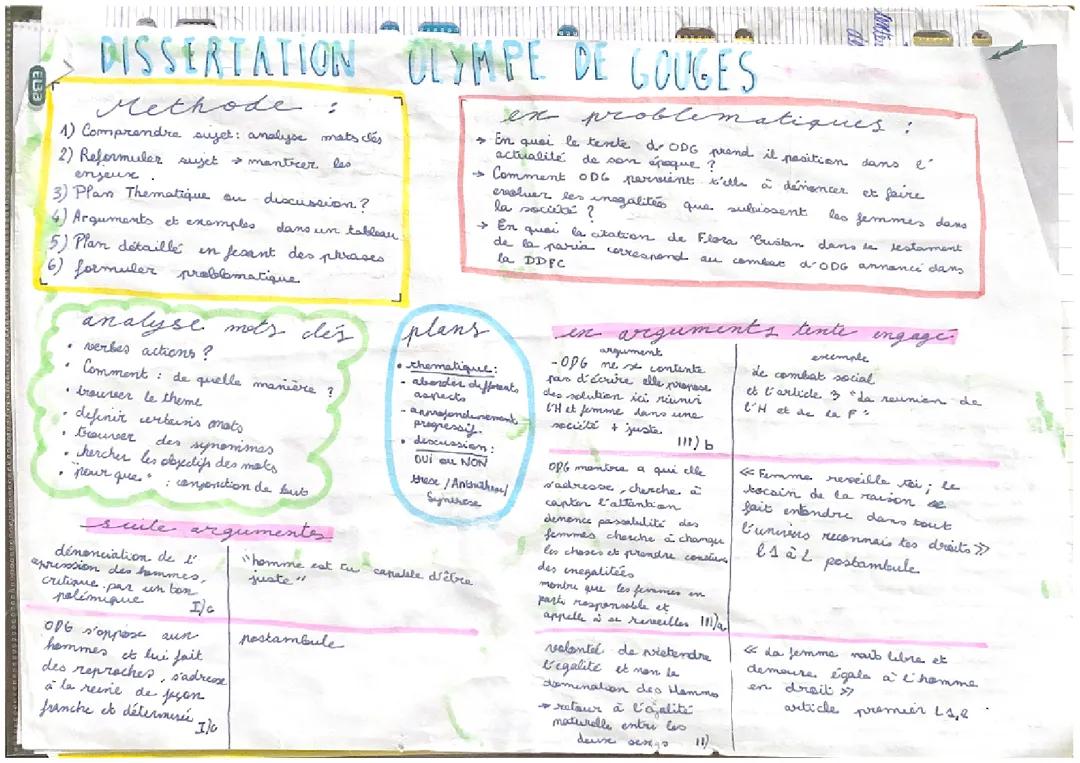 DISSERTATION OLYMPE DE GOUGES
ELBA
Methode :
1) Comprendre sujet : analyse mots clés
2) Reformuler sujet → montrer les
enjeux.
3) Plan Thematique ou discussion ?
4) Arguments et exemples dans un tableau
5) Plan détaillé en fesant des phrases
6) formuler problématique
ex problematiques :
→ En quoi le texte d'ODG prend il position dans l'
actualité de son époque ?
→ Comment ODG parvient t'elle à dénoncer et faire
evoluer les inegalités que subissent les femmes dans
la société ?
→ En quoi la citation de Flora Tristan dans le testament
de la paria correspond au combat d'ODG annoncé dans
la DDFC
analyse mots clés
• verbes actions ?
• Comment : de quelle manière ?
• trouver le theme
• definir certains mots
• trouver des synonimes
• chercher les objectifs des mots
• "pour que" : conjonction de but
plans
• thematique :
- aborder differents
aspects
- approfondissement
progressif.
• discussion :
OUI ou NON
these / Antithese /
Synthese
ex arguments texte engagé
argument
- ODG ne se contente
pas d'écrire elle propose
des solution ici réunir
l'H et femme dans une
société + juste
III) b
exemple
de combat social
et l'article 3 "la reunion de
l'H et de la F"
ODG montre a qui elle
s'adresse, cherche à
capter l'attention
denonce passabilité des
femmes cherche à changé
les choses et prendre
des inegalités
montre que les femmes en
parti responsable et
appelle à se reveiller III)a
« Femme reveille toi ; le
tocsin de la raison se
fait entendre dans tout
l'univers reconnais tes droits »
l 1 à 2 postambule
volonté de pretendre
l'egalité et non la
domination des Hommes
→ retour à l'égalité
naturelle entre les
deux sexes II)
« La femme naît libre et
demeure égale à l'homme
en droit »
article premier L1,2
suite arguments
dénonciation de l'
opression des hommes,
critique par un ton
polémique
I)c
"homme est tu capable d'être
juste"
ODG s'oppose aux
hommes et lui fait
des reproches, s'adresse
à la reine de façon
franche et déterminée
I)c
postambule